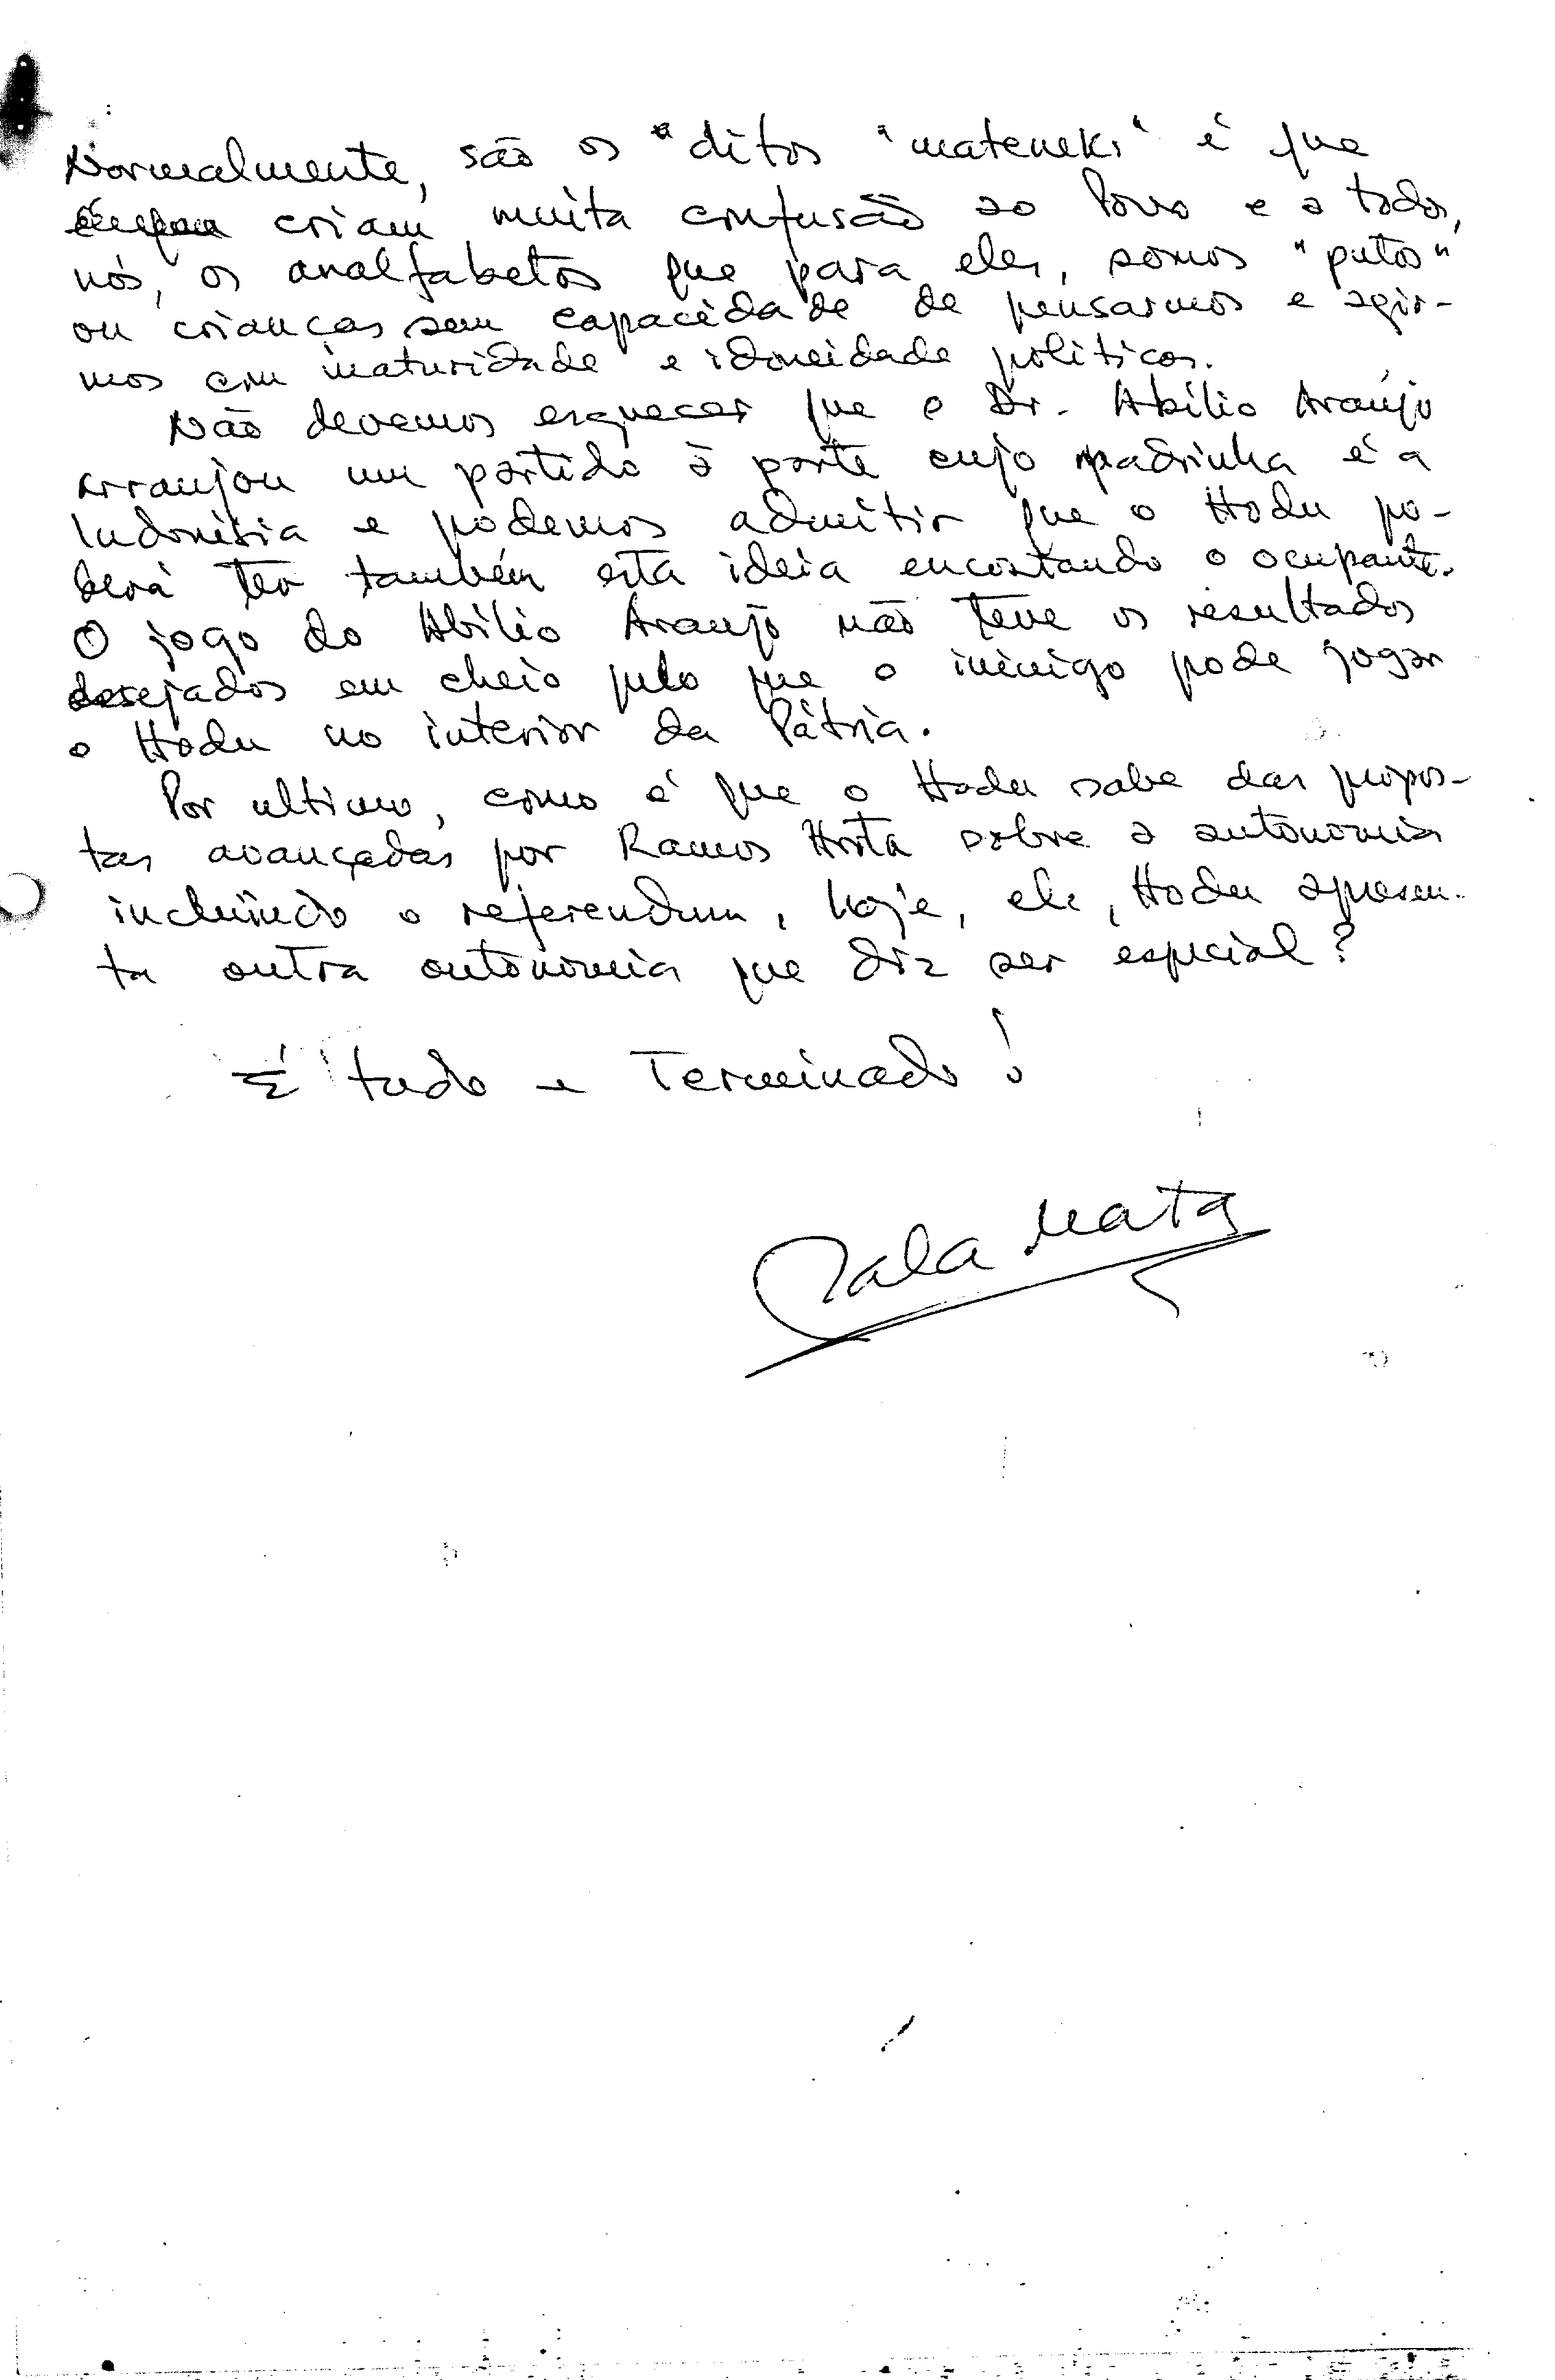 Normalmente, são os "ditos "matenek" é que
criam muita confusão ao Povo e a todos,
nós, os analfabetos que para eles, somos "putos"
ou crianças sem capacidade de pensarmos e agir-
mos com maturidade e idoneidade políticas.
Não devemos esquecer que o Dr. Abílio Araújo
arranjou um partido à parte cujo padrinha é a
Indonésia e podemos admitir que o Hodu po-
derá ter também esta ideia encostando o ocupante.
O jogo do Abílio Araujo não teve os resultados
desejados em cheio pelo que o inimigo pode jogar
o Hodu no interior da Pátria.
Por ultimo, como é que o Hodu sabe das propos-
tas avançadas por Ramos Horta sobre a autonomia
incluíndo o referendum, hoje, ele, Hodu apresen-
ta outra autonomia que diz ser especial?
É tudo e Terminado!
Mata